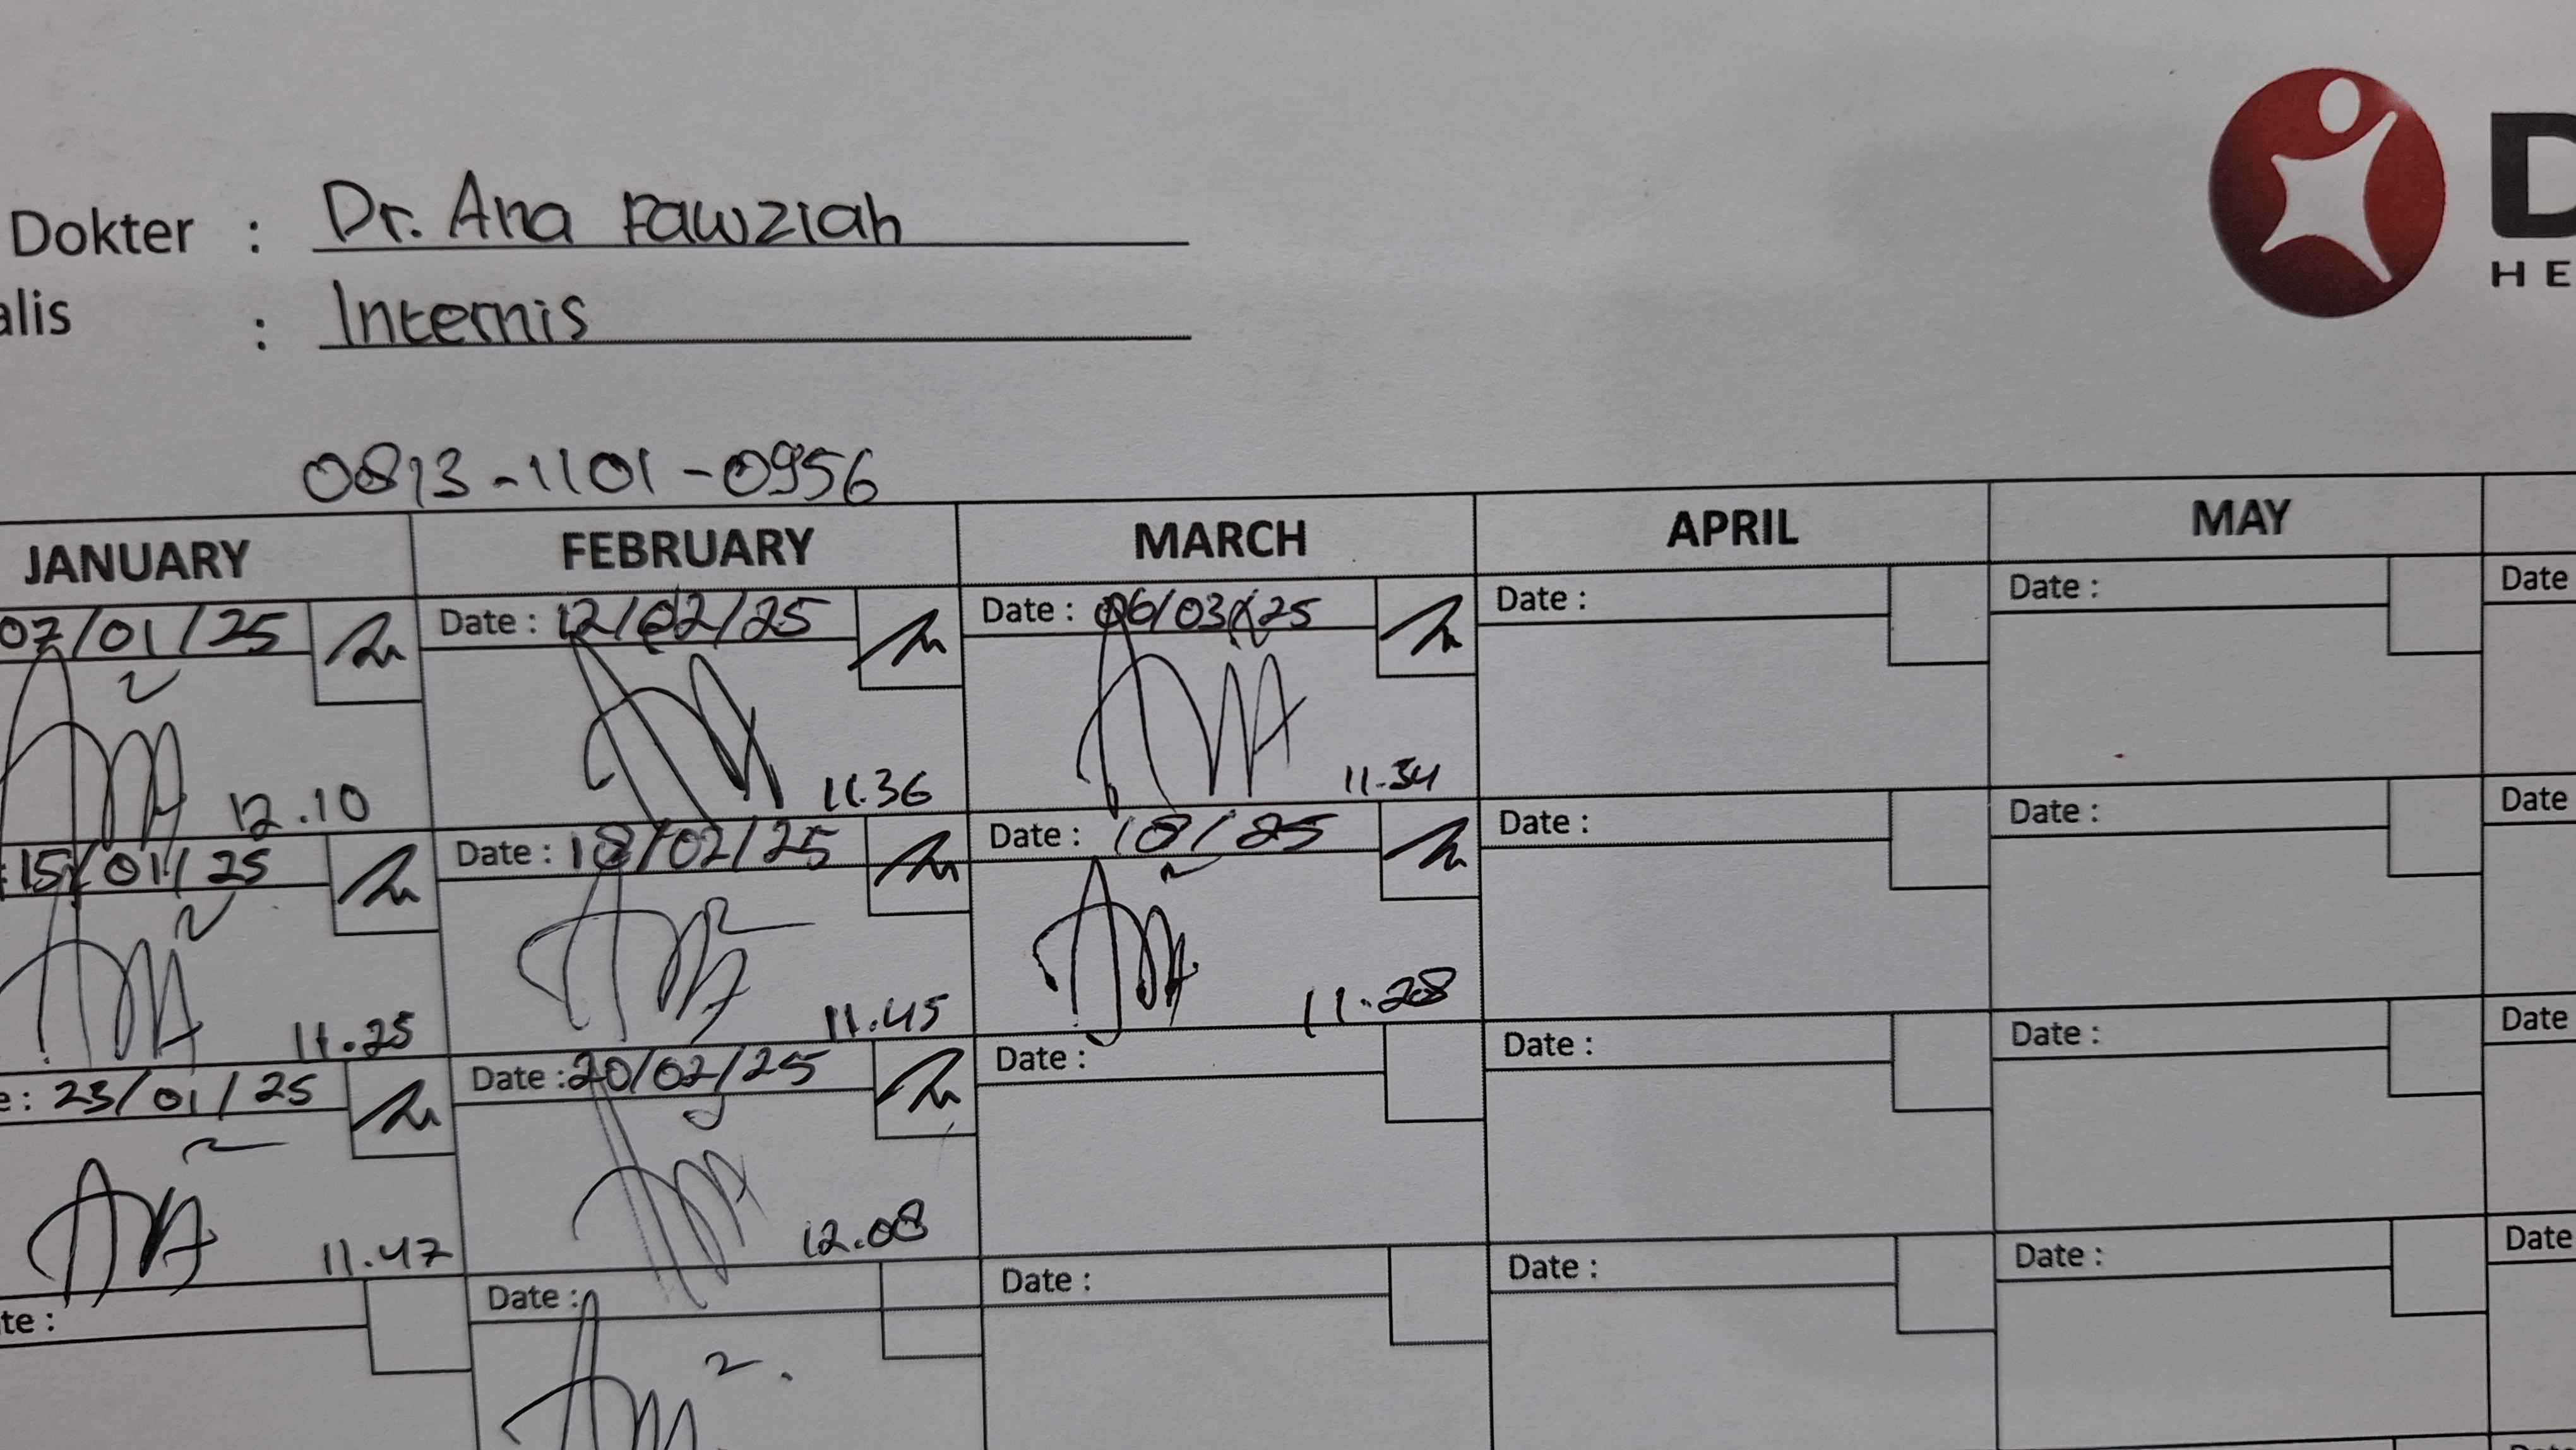 Dokter : Dr. Ana Fawziah
alis : Internis
D
HE
0813-1101-0956
JANUARY FEBRUARY MARCH APRIL MAY
07/01/25 Date : 12/02/25 Date : 06/03/25 Date : Date : Date
12.10 11.36 11.34
15/01/25 Date : 18/02/25 Date : 18/25 Date : Date : Date
11.25 11.45 11.28
e : 23/01/25 Date : 20/02/25 Date : Date : Date : Date
11.47 12.08
te : Date : Date : Date : Date : Date